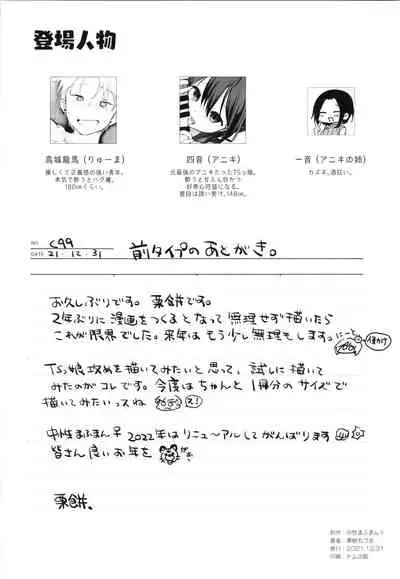 登場人物
高城龍馬(りゅーま)
優しくて正義感の強い青年。
本気で酔うとハグ魔。
180㎝くらい。
四音(アニキ)
元最強のアニキだったTSっ娘。
酔うと甘えん坊かつ
好奇心旺盛になる。
普段は誘い受け。148㎝。
一音(アニキの姉)
カズネ。酒狂い。
NO. C99
DATE 21・12・31
前タイプのあとがき。
お久しぶりです。栗餅です。
2年ぶりに漫画をつくるとなって無理せず描いたら
これが限界でした。来年はもう少し無理もします。
TSっ娘攻めを描いてみたいと思って、試しに描いて
みたのがコレです。今度はちゃんと1冊分のサイズで
描いてみたいっスね
中性まふまん♀2022年はリニューアルしてがんばります
皆さん良いお年を
栗餅、
制作:中性まふまん♀
発行:2021.12.31